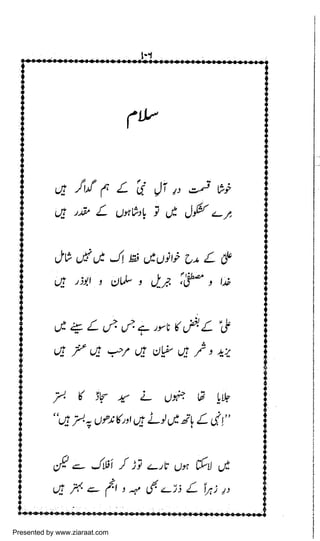 ۱۰۶
سلام
خوشا قسمت درِ آلِ نبیؐ کے ہم گداگر ہیں
مرے کشکول میں تو بادشاہوں کے مقدر ہیں
علیؑ کے مدح خوانوں میں فقط اِک میں نہیں شامل
خدا و مصطفیٰؐ، جبریل و سلمان و ابوذر ہیں
علیؑ کے بغض کا ناسور ہے جس جس کے سینے میں
یزید و شمر ہیں سفیان ہیں مرحب ہیں عنتر ہیں
جلایا تھا جنہوں نے سید سجادؑ کا بستر
”اِنہی کے ہاتھ میں لوٹے ہیں اور کاندھوں پہ بستر ہیں“
میں لا سکتا ہوں تارے توڑ کر افلاک سے لیکن
درِ زہراؑ کے ذرّے بھی مہہ و انجم سے بہتر ہیں
Presented by www.ziaraat.com